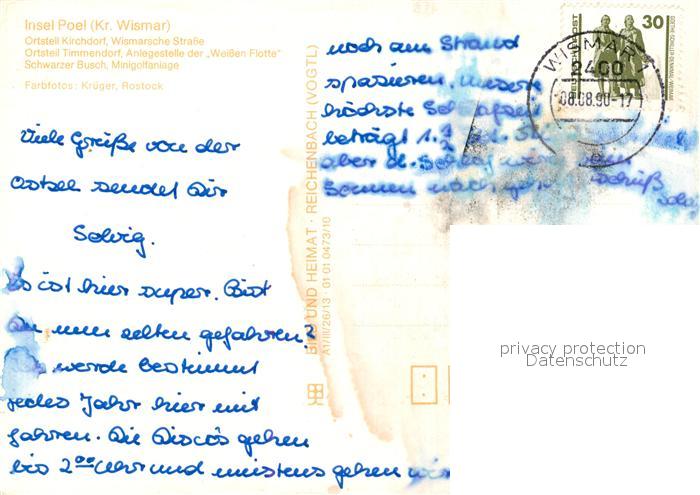 Insel Poel (Kr. Wismar)
Ortsteil Kirchdorf, Wismarsche Straße
Ortsteil Timmendorf, Anlegestelle der „Weißen Flotte"
Schwarzer Busch, Minigolfanlage
Farbfotos: Krüger, Rostock
Viele Grüße von der
Ostsee sendet Dir
Solvig.
Es ist hier super. Bist
Du nun selten gefahren?
werde bestimmt
jedes Jahr hier mit
fahren. Die Disco's gehen
bis 2⁰⁰ Uhr und meistens gehen wir
noch am Strand
spazieren. unsere
höchste
beträgt 1 1/2
aber d.
Sonnen
BILD UND HEIMAT · REICHENBACH (VOGTL)
A1/III/26/13 · 01 01 0473/10
WISMAR 1
2400
08.08.90-17
DEUTSCHE POST
30
GOETHE-SCHILLER-DENKMAL, WEIMAR
privacy protection
Datenschutz